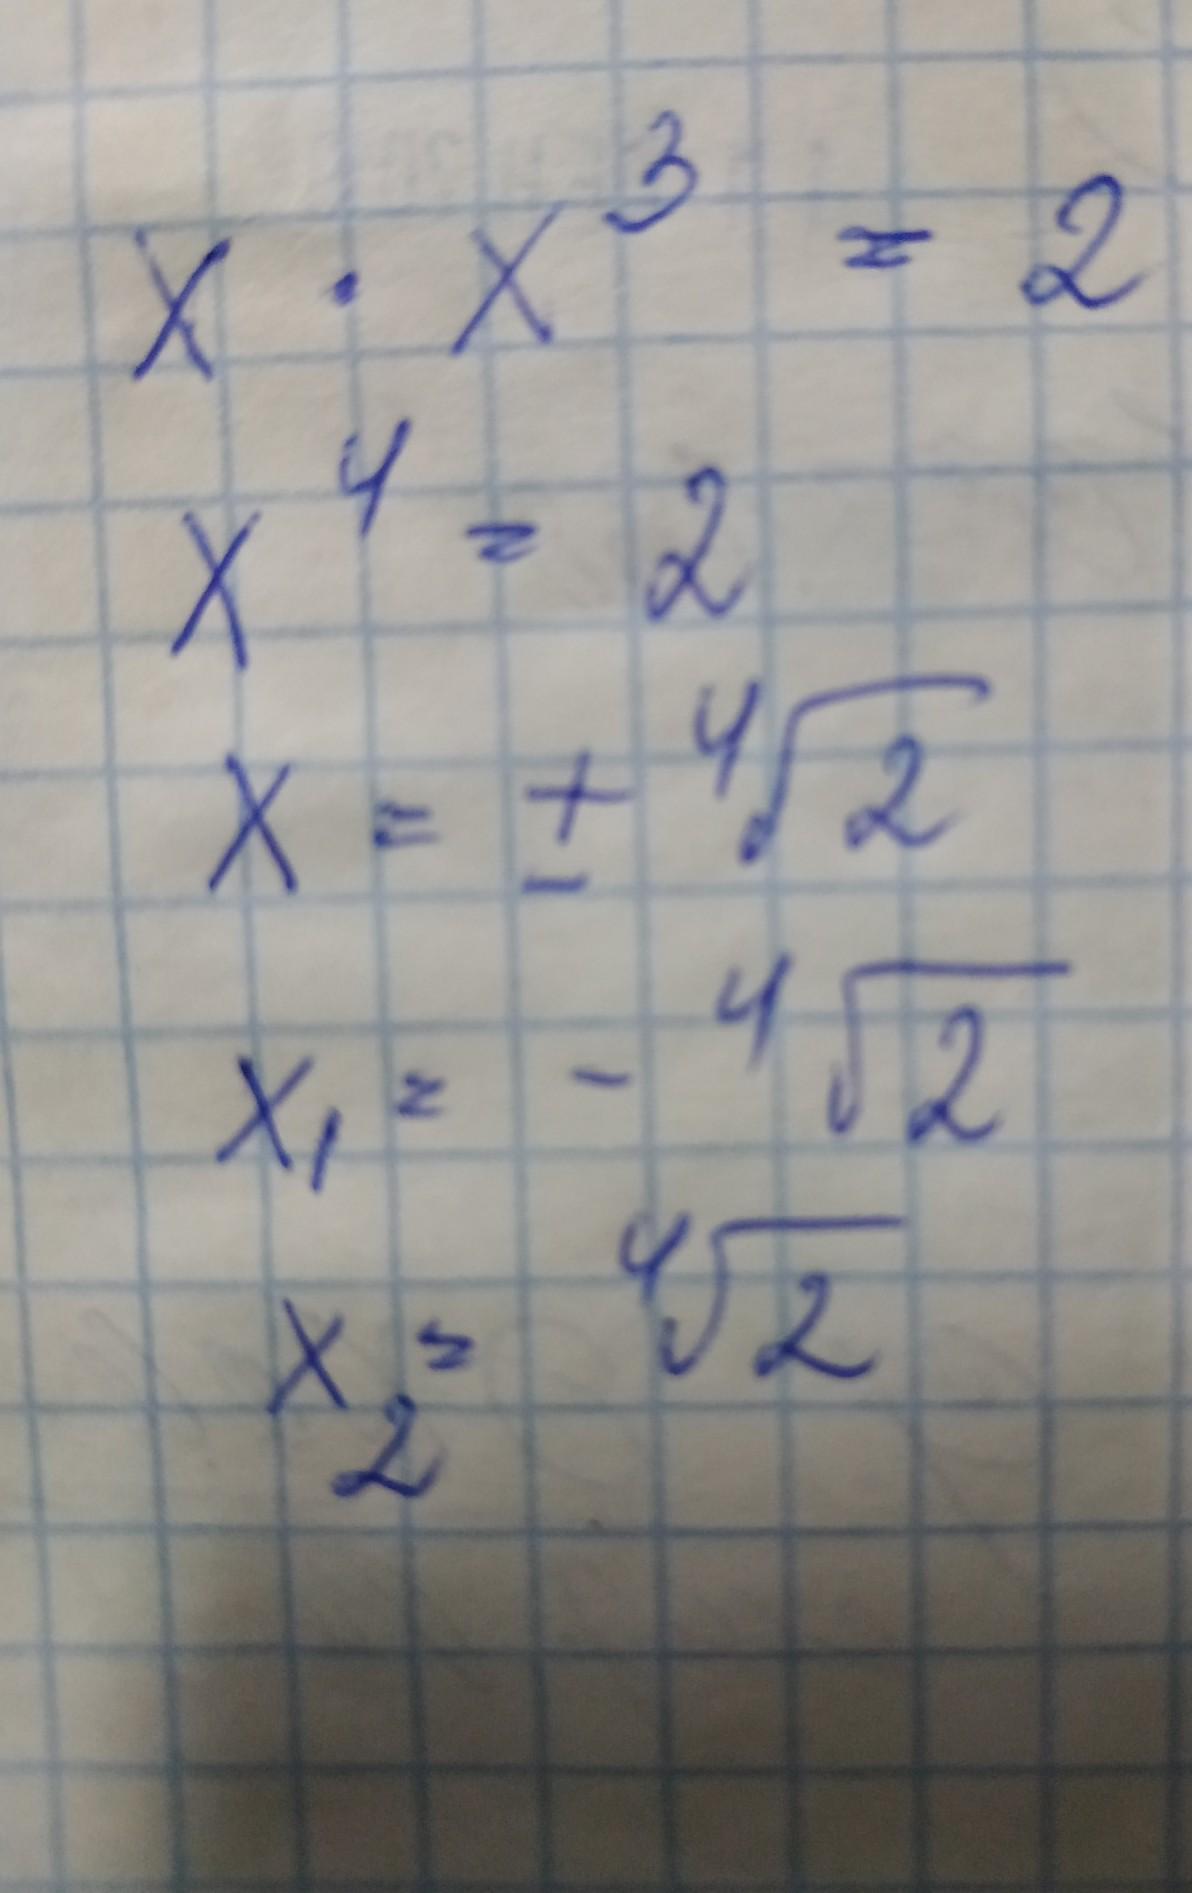 x · x³ = 2
x⁴ = 2
x = ± ⁴√2
x₁ = - ⁴√2
x₂ = ⁴√2